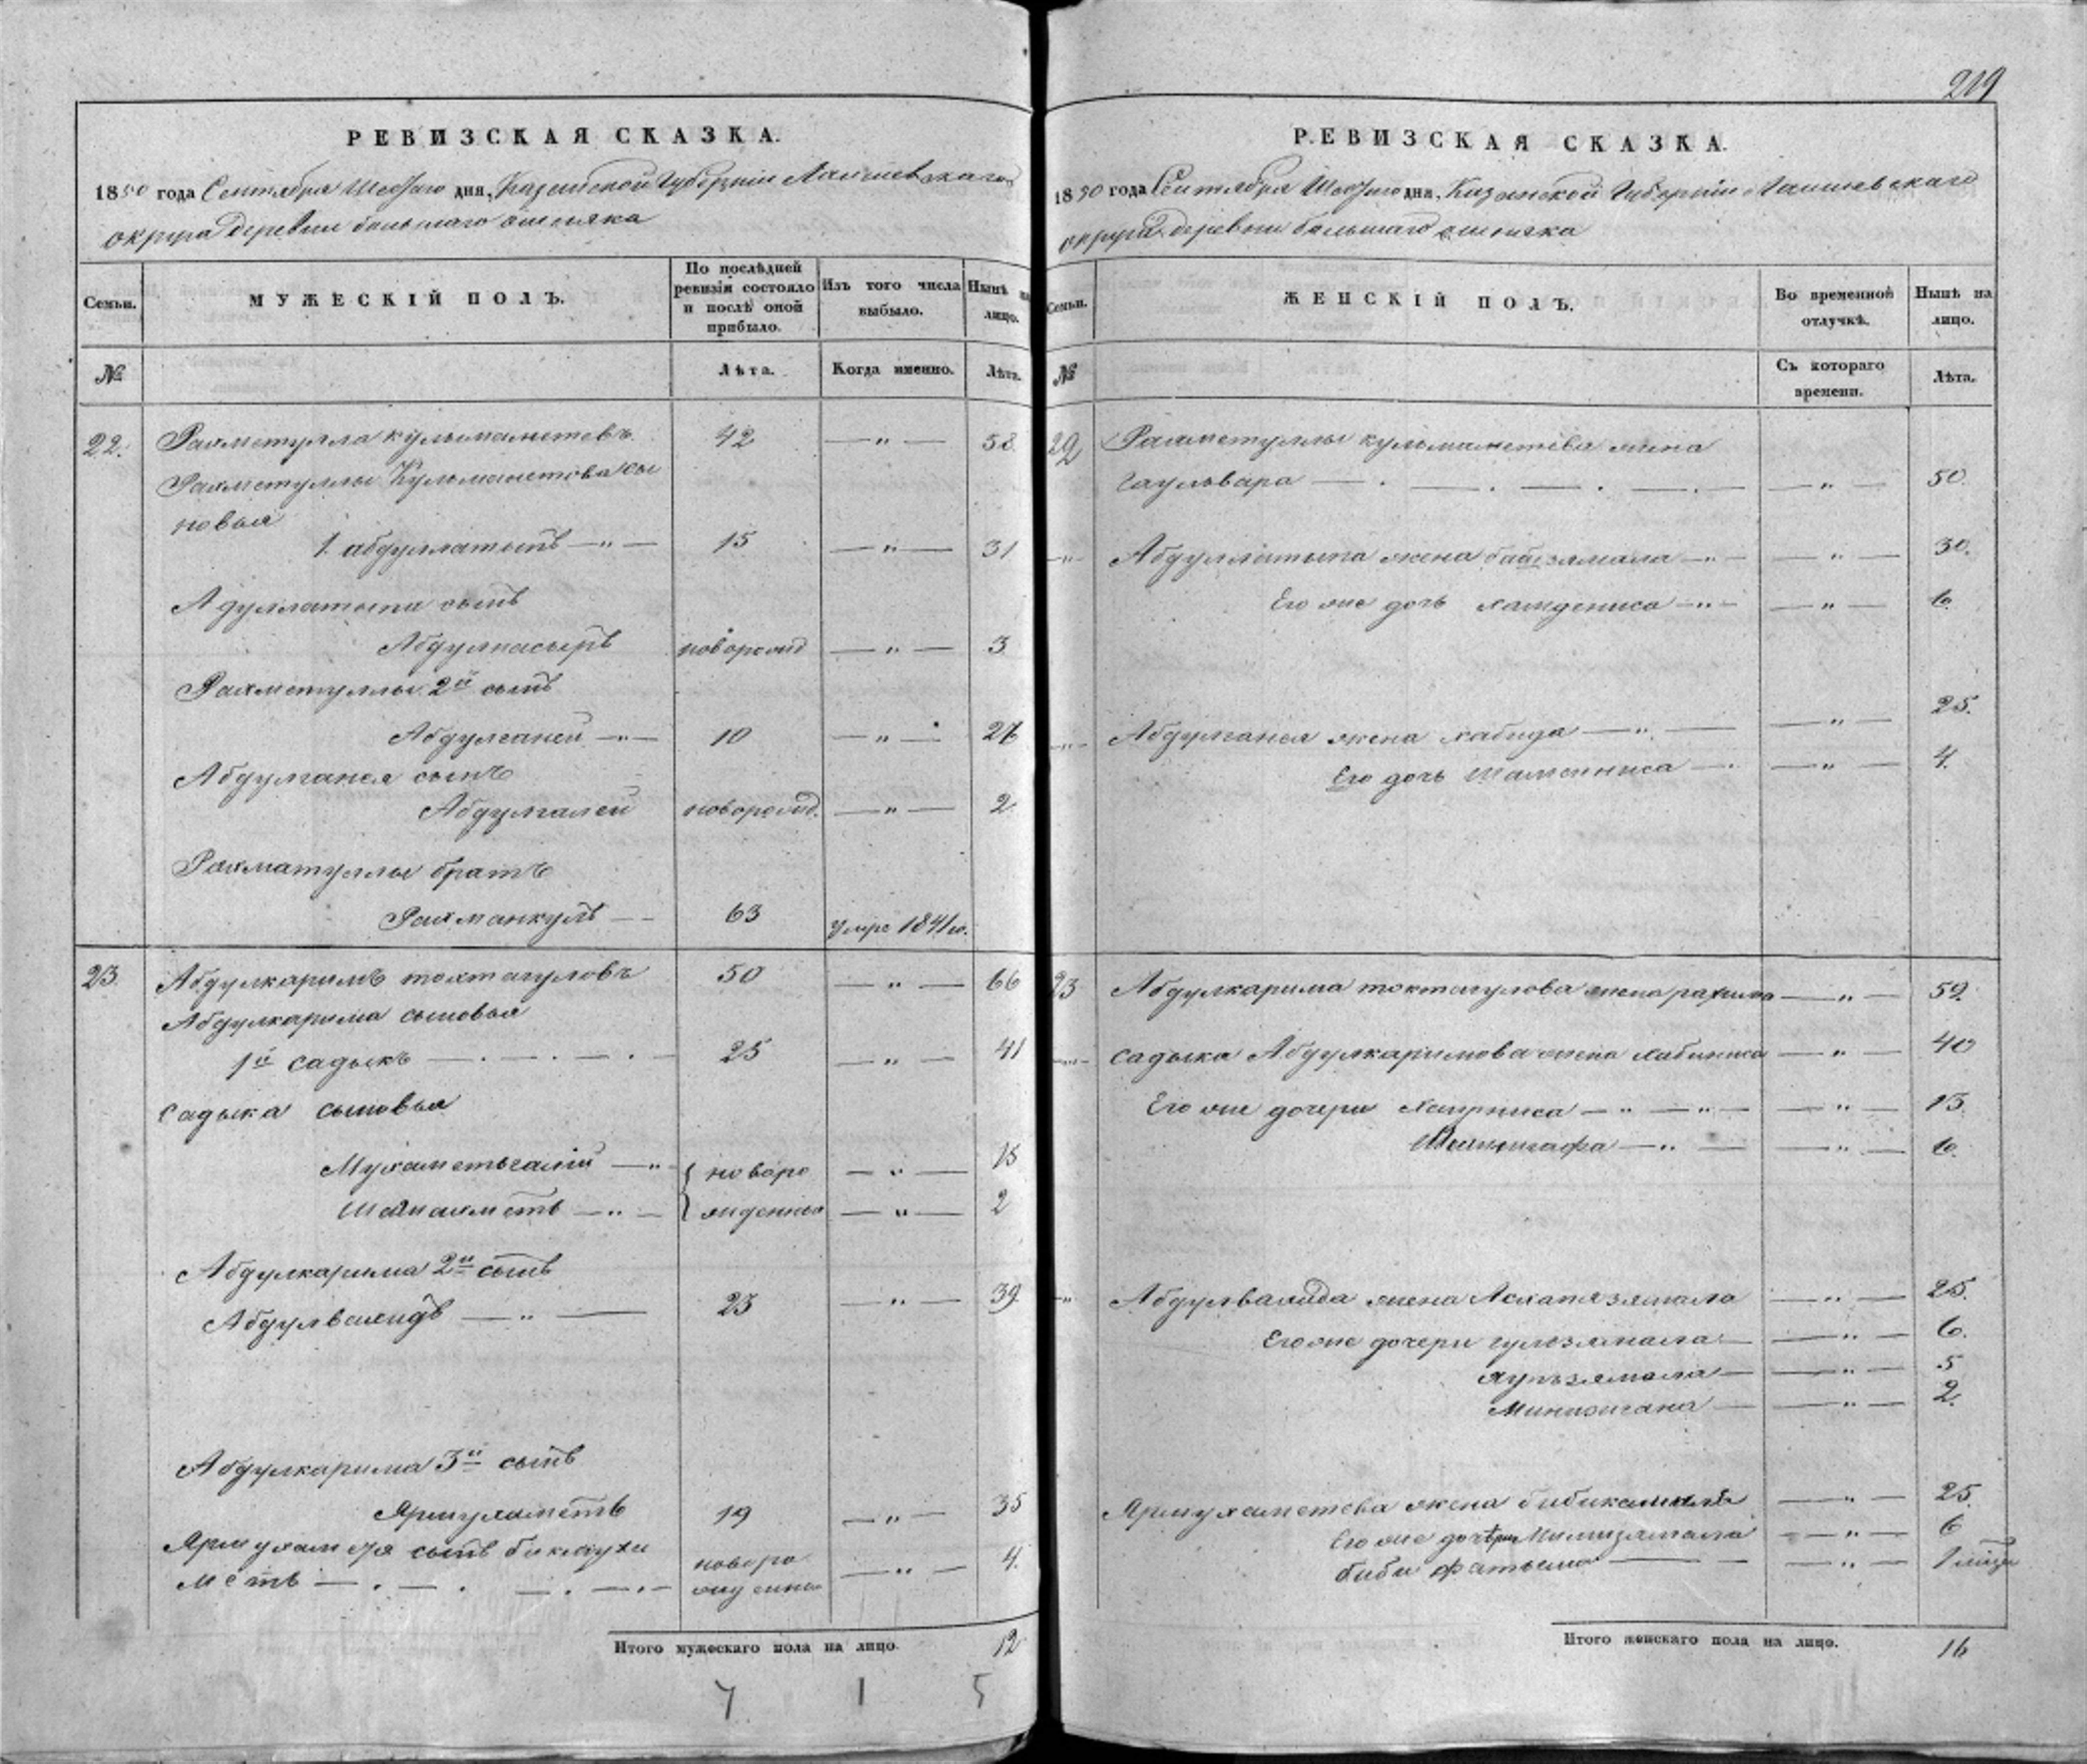 219
РЕВИЗСКАЯ СКАЗКА.
1850 года Сентября Шестаго дня, Казанской Губернии Лаишевскаго
округа деревни большаго ошняка
Семьи. МУЖЕСКІЙ ПОЛЪ. По послѣдней ревизіи состояло и послѣ оной прибыло. Изъ того числа выбыло. Нынѣ на лицо.
№ Лѣта. Когда именно. Лѣта.
22. Рахметулла кульмаметевъ 42 — „ — 58.
Рахметуллы Кульмаметова сы
новья
1. абдуллатыпъ — „ — 15 — „ — 31
Адуллатыпа сынъ
Абдулнасыръ новорожд — „ — 3
Рахметуллы 2й сынъ
Абдулганей — „ — 10 — „ — 26
Абдулганея сынъ
Абдулгалей новорожд. — „ — 2
Рахматуллы братъ
Рахманкулъ — — 63 умре 1841го.
23. Абдулкаримъ тохтагуловъ 50 — „ — 66
Абдулкарима сыновья
1й садыкъ — . — . — . — 25 — „ — 41
садыка сыновья
Мухаметьгалій — „ { новоро — „ — 18
Шаиахметъ — „ — { жденны — „ — 2
Абдулкарима 2й сынъ
Абдулвахидъ — „ — 23 — „ — 39.
Абдулкарима 3й сынъ
Ярмухаметъ 19 — „ — 35
Ярмухаметя сынъ бикмуха новоро — „ — 4.
метъ — . — . — . — . — жденно
Итого мужескаго пола на лицо. 12
7 1 5
РЕВИЗСКАЯ СКАЗКА.
1850 года Сентября Шестаго дня, Казанской Губерніи Лаишевскаго
округа деревни большаго ошняка
Семьи. ЖЕНСКІЙ ПОЛЪ. Во временной отлучкѣ. Нынѣ на лицо.
№ Съ котораго времени. Лѣта.
22 Рахметуллы кульмаметева жена
Гаульвара — . — . — . — . — — „ — 50.
„ Абдуллатыпа жена байзямала — „ — — „ — 30.
Его же дочь хамдениса — „ — — „ — 6.
„ Абдулганея жена хабида — „ — — „ — 25.
Его дочь шамсиниса — . — „ — 4.
23 Абдулкарима токтагулова жена рахима — „ — 59.
„ садыка Абдулкаримова жена хабиниса — „ — 40
Его же дочери — „ — „ — — „ — 13.
— „ — — „ — 6.
„ Абдулвахида жена Асхапзямала — „ — 25.
Его же дочери гулзямала — — „ — 6.
— — „ — 5
Минизигана — — „ — 2.
Ярмухаметева жена бибикамала — „ — 25.
Его же дочери Мимизямала — „ — 6
биби фатыма — — „ — 1
Итого женскаго пола на лицо. 16